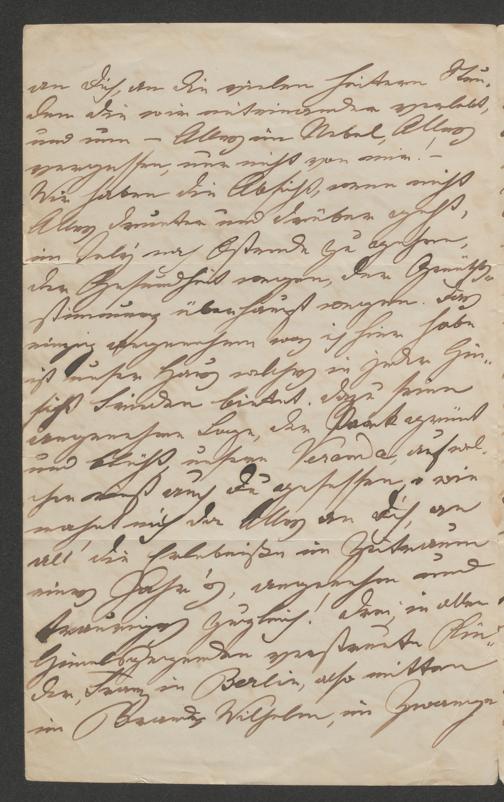 an Dich, an die vielen heitern Stun-
den die wir miteinander verlebt,
und nun – Alles im Nebel, Alles
vergessen, nur nicht von mir. –
Wir haben die Absicht, wenn nicht
Alles drunter und drüber geht,
im July nach Ostende zu gehen,
der Gesundheit wegen, der Gemüths-
stimmung überhaupt wegen. Das
einzig Angenehme was ich hier habe
ist unser Haus welches in jeder Hin-
sicht Frieden bietet. Dazu seine
angenehme Lage, der Park grünt
und blüht unsere Veranda, auf wel-
cher auch Du gesessen, o wie
mahnt mich da Alles an Dich, an
all' die Erlebniße im Zeitraum
eines Jahr's, angenehm und
traurig zugleich! Drei, in allen
Himmelsgegenden verstreute Kin-
der, Franz in Berlin, also mitten
im Brande, Wilhelm, im Zwange